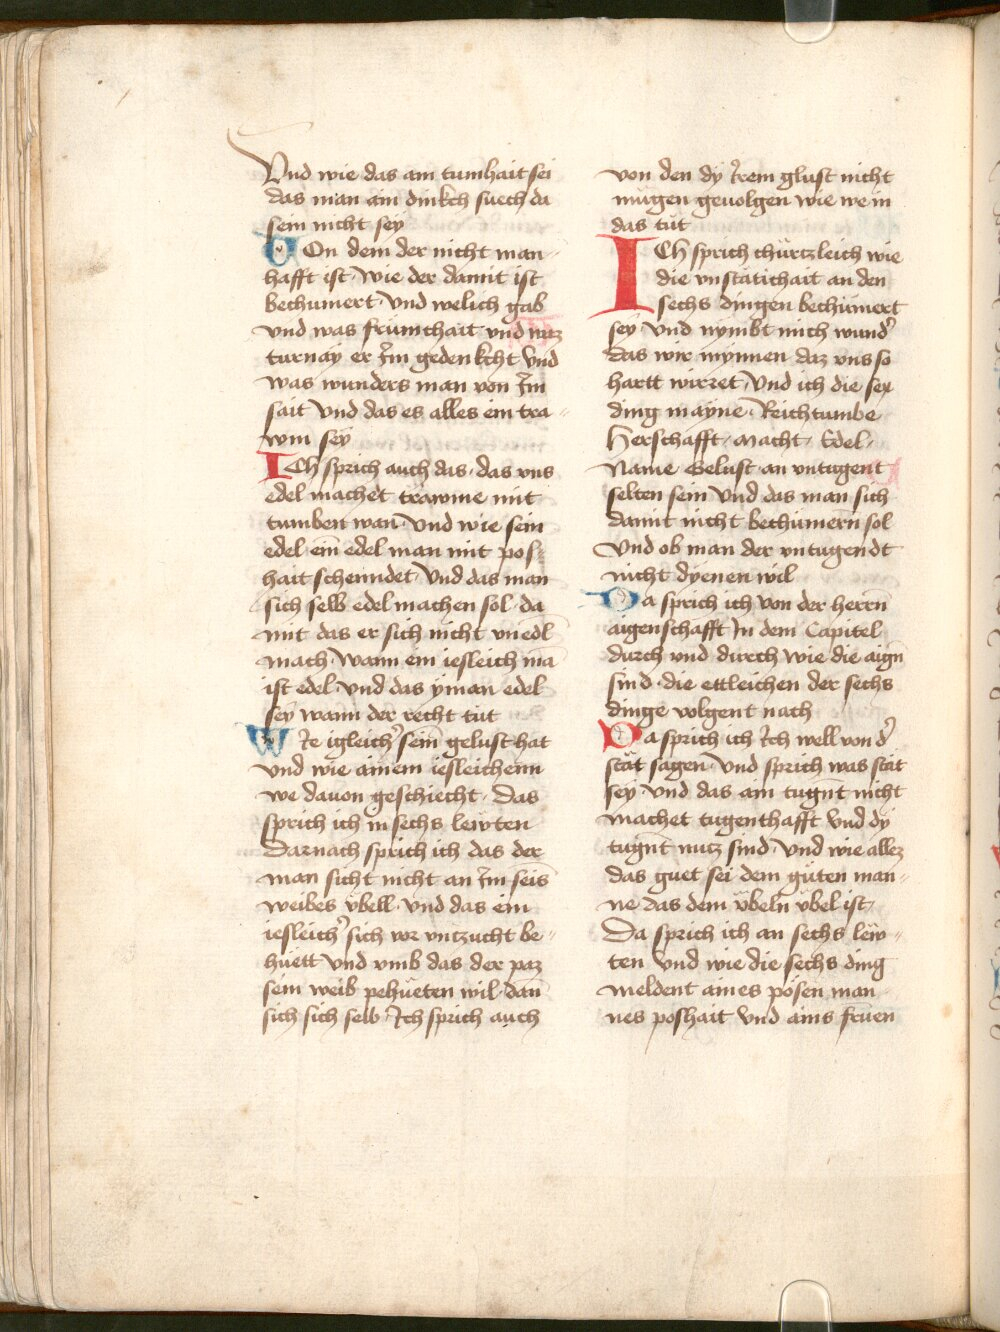 Vnd wie das am tumhait sei
das man am dinkch suech da
sein nicht sey
Von dem der nicht man-
hafft ist · wie der damit ist
bechumert · Vnd welich gab
vnd was frümchait vnd waz
turnay er Im gedenkcht Vnd
was wunders man von Im
sait Vnd das es alles ein tra-
wm sey
ICh sprich auch das · das vns
edel machet träwme mit
tumben wan · Vnd wie sein
edel ein edel man mit pos-
hait schenndet · Vnd das man
sich selb edel machen sol · da
mit das er sich nicht vnedl
mach · Wann ein iesleich mā
ist edel · Vnd das yman edel
sey wann der recht tüt
WIe igleich' sein gelust hat
vnd wie ainem iesleichenn
we dauon geschiecht · Das
sprich ich in sechs lewten
Darnach sprich ich das der
man sicht nicht an Im seīs
weibes vbell · Vnd das ein
iesleich' sich vor vntzucht be-
hüett Vnd vmb das der paz
sein weib pehüeten wil · dan̄
sich sich selb · Ich sprich auch
von den dy Irem glust nicht
mügen geuolgen wie we in
das tüt
ICh sprich chürtzleich wie
die vnstätichait an den
sechs dingen bechümert
sey · Vnd nymbt mich wund'
das wir mynnen daz vns so
hartt wirret · Vnd ich die sex
ding mayne · Reichtumbe
Herschafft · Macht · Edel ·
Name Gelust · an vntugent
selten sein Vnd das man sich
damit nicht bechümern̄ sol
Vnd ob man der vntugendt
nicht dyenen wil
Da sprich ich von der herrn̄
aigenschafft In dem Capitel
durch vnd durch wie die aign̄
sind · die ettleichen der sechs
dinge volgent nach
Da sprich ich Ich well von d'
stät sagen · Vnd sprich was stät
sey · Vnd das am tugn̄t nicht
machet tugenthafft Vnd dy
tugn̄t nutz sind · Vnd wie allez
das guet sei dem güten man-
ne das dem vbeln vbel ist ·
Da sprich ich an sechs lew-
ten Vnd wie die sechs ding
meldent aines pösen man-
nes poshait Vnd ains fruen